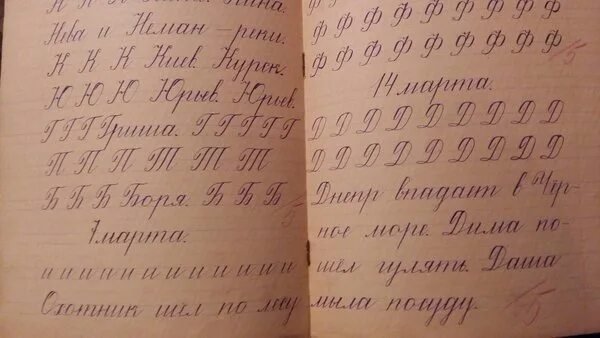 Нева и Неман – реки.
К К К Киев. Курск.
Ю Ю Ю Юрьев. Юрьев.
Г Г Г Гриша. Г Г Г Г Г
П П П Т Т Т
Б Б Б Боря. Б Б Б
5
7 марта.
и и и и и и и и и и и
Охотник шёл по лесу
ф ф ф ф ф ф ф ф ф
ф ф ф ф ф ф ф ф ф
5
14 марта.
Д Д Д Д Д Д Д Д Д
Д Д Д Д Д Д Д Д Д
Днепр впадает в Чёр-
ное море. Дима по-
шёл гулять. Даша
мыла посуду.
5